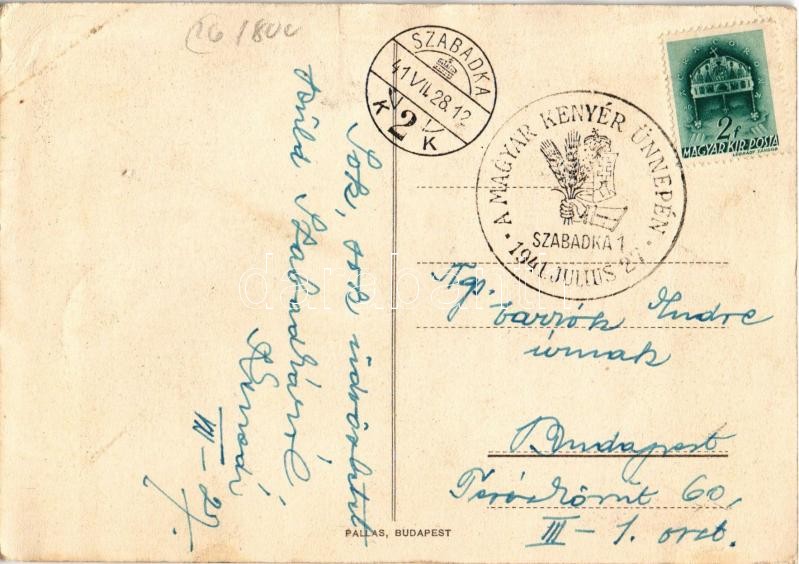 26/800
SZABADKA
41 VII. 28. 12
K 2 K
A MAGYAR KENYÉR ÜNNEPÉN
SZABADKA 1
1941 JULIUS 27
2f
MAGYAR KIR. POSTA
Sok, sok üdvözletet
küld Szabadkáról
VII-27
Ngs.
Endre
úrnak
Budapest
Teréz körút 60,
III-1. oszt.
PALLAS, BUDAPEST